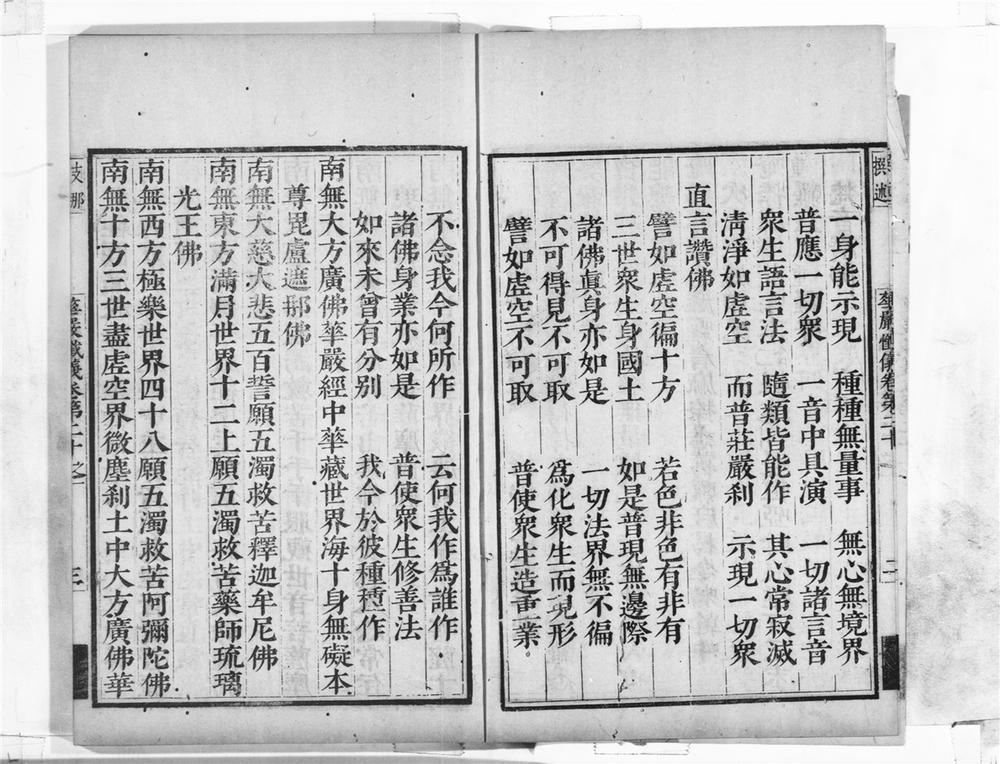 一身能示現　種種無量事　無心無境界
普應一切衆　一音中具演　一切諸言音
衆生語言法　隨類皆能作　其心常寂滅
淸淨如虛空　而普莊嚴刹　示現一切衆
直言讚佛
譬如虛空徧十方　若色非色有非有
三世衆生身國土　如是普現無邊際
諸佛眞身亦如是　一切法界無不徧
不可得見不可取　爲化衆生而現形
譬如虛空不可取　普使衆生造重業
不念我今何所作　云何我作爲誰作
諸佛身業亦如是　普使衆生修善法
如來未曾有分別　我今於彼種種作
南無大方廣佛華嚴經中華藏世界海十身無礙本
尊毘盧遮那佛
南無大慈大悲五百誓願五濁救苦釋迦牟尼佛
南無東方滿月世界十二上願五濁救苦藥師琉璃
光王佛
南無西方極樂世界四十八願五濁救苦阿彌陀佛
南無十方三世盡虛空界微塵刹土中大方廣佛華
華嚴懺儀卷第二十之
三